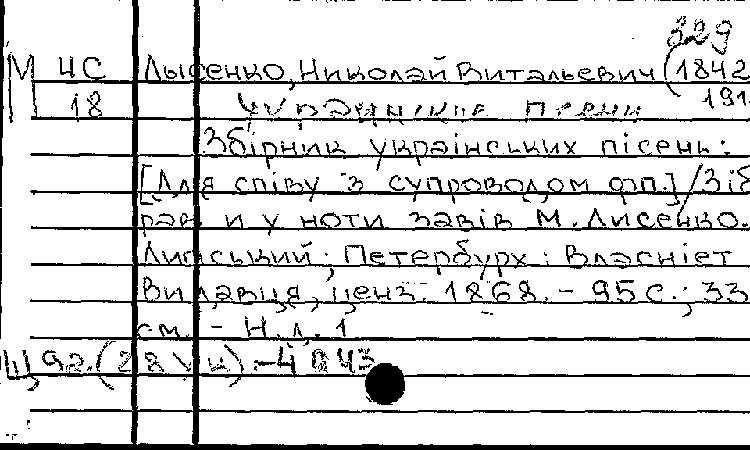 329
М ЧС Лысенко, Николай Витальевич (1842
18 Украинские песни 191
Збірник українських пісень:
[Для співу з супроводом фп.] / Зіб
рав и у ноти завів М. Лисенко.
Липський; Петербурх: Власніст
Видавця, ценз. 1868. - 95 с.; 33
см. - Н.д. 1